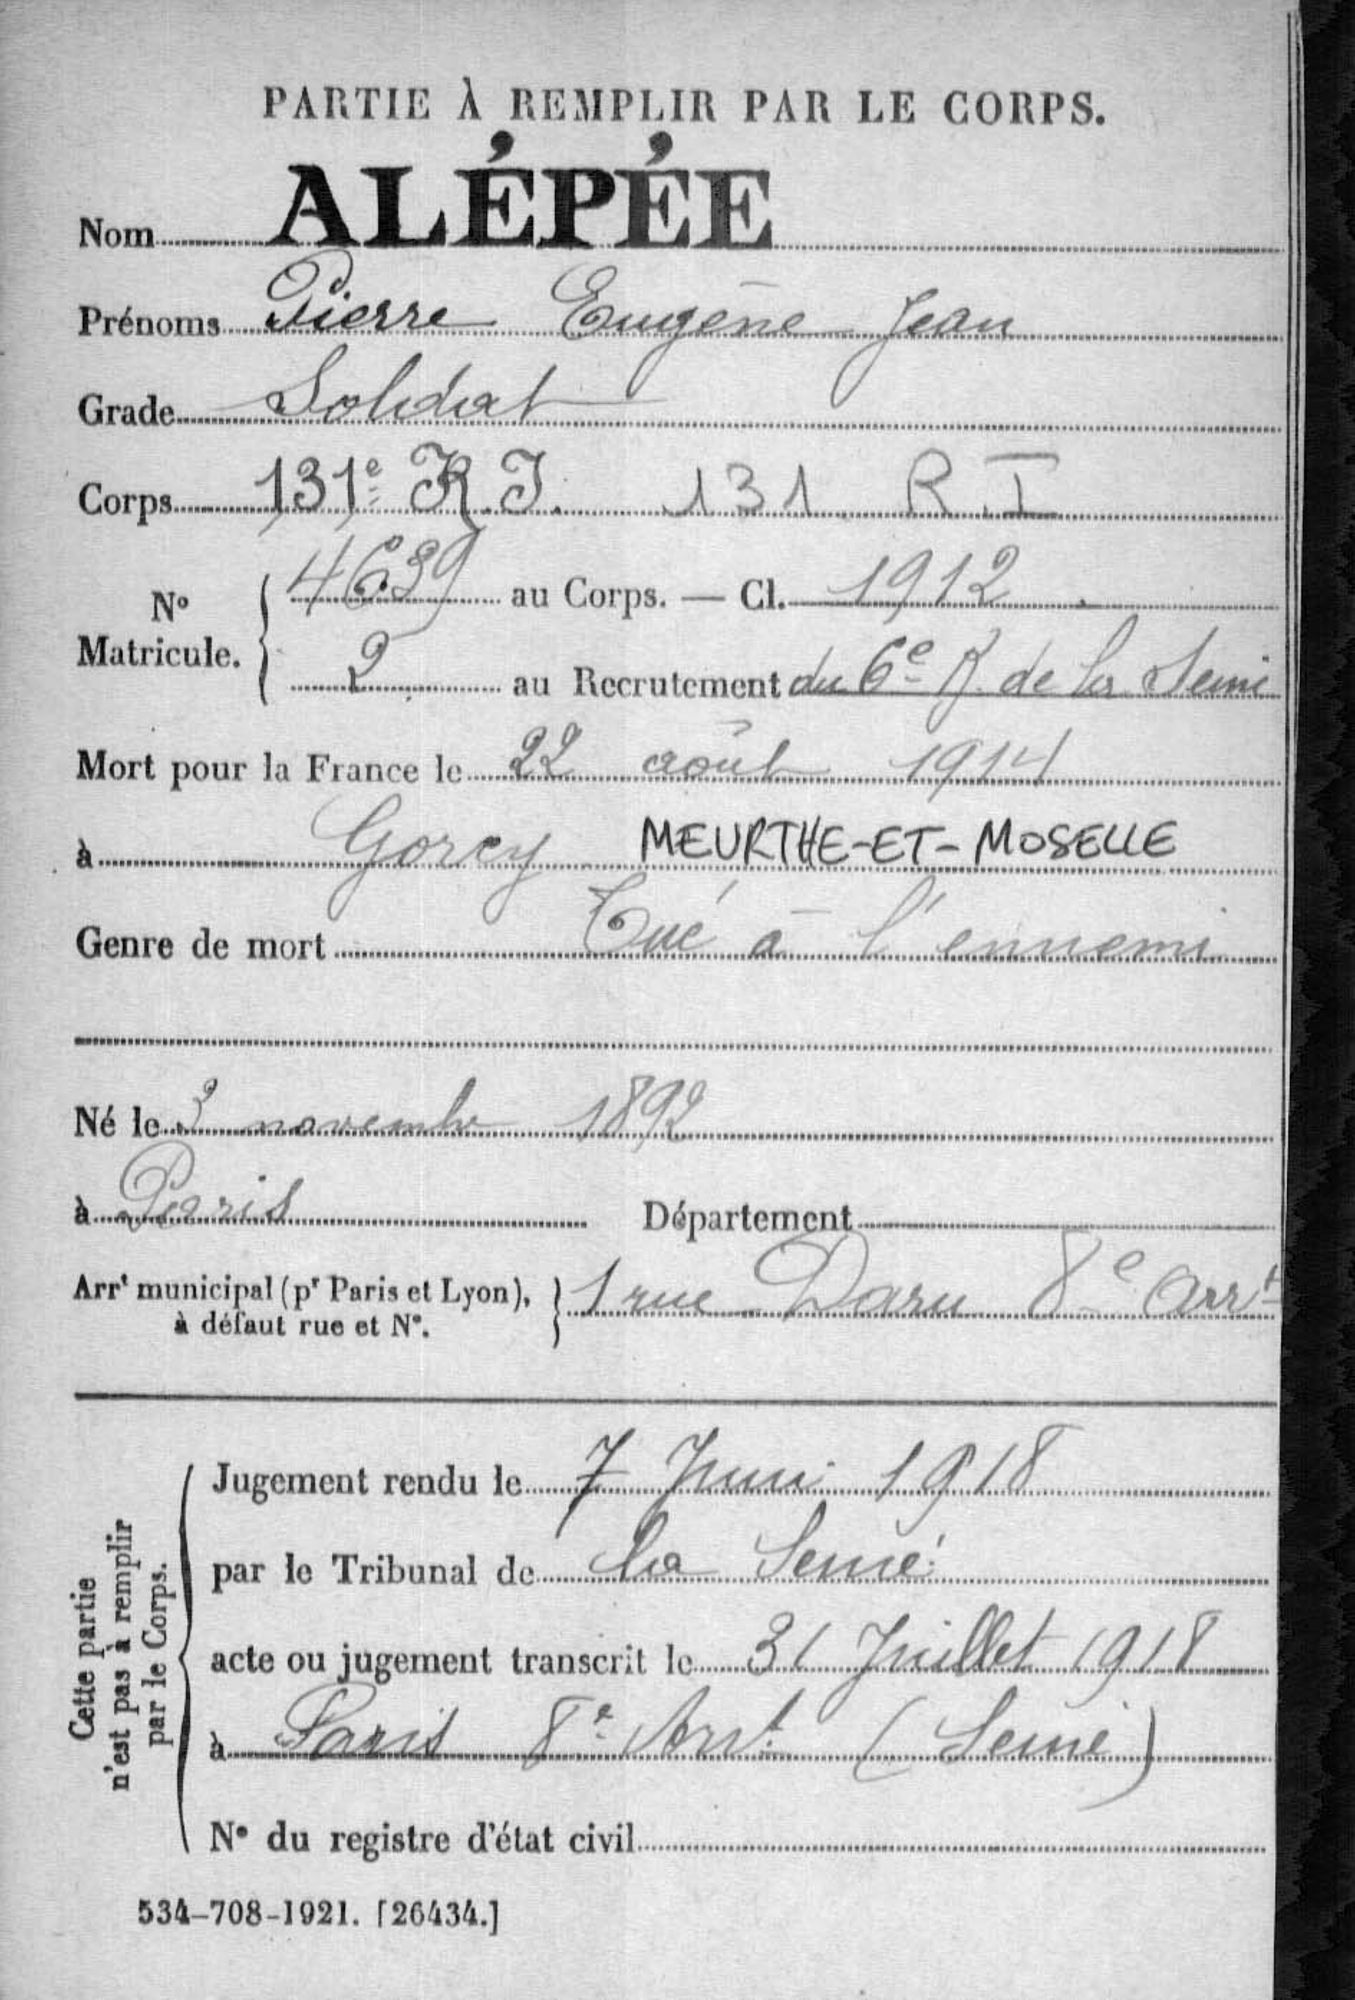 PARTIE À REMPLIR PAR LE CORPS.
Nom ALÉPÉE
Prénoms Pierre Eugène Jean
Grade Soldat
Corps 131e R.I. 131 R I
No Matricule. 4639 au Corps. — Cl. 1912
2 au Recrutement du 6e B. de la Seine
Mort pour la France le 22 août 1914
à Gorcy MEURTHE-ET-MOSELLE
Genre de mort Tué à l'ennemi
Né le novembre 1892
à Paris Département
Arrt municipal (pr Paris et Lyon), à défaut rue et No. 1 rue Daru 8e Arrt
Cette partie n'est pas à remplir par le Corps.
Jugement rendu le 7 Juin 1918
par le Tribunal de la Seine
acte ou jugement transcrit le 31 Juillet 1918
à Paris 8e Arrt (Seine)
No du registre d'état civil
534-708-1921. [26434.]